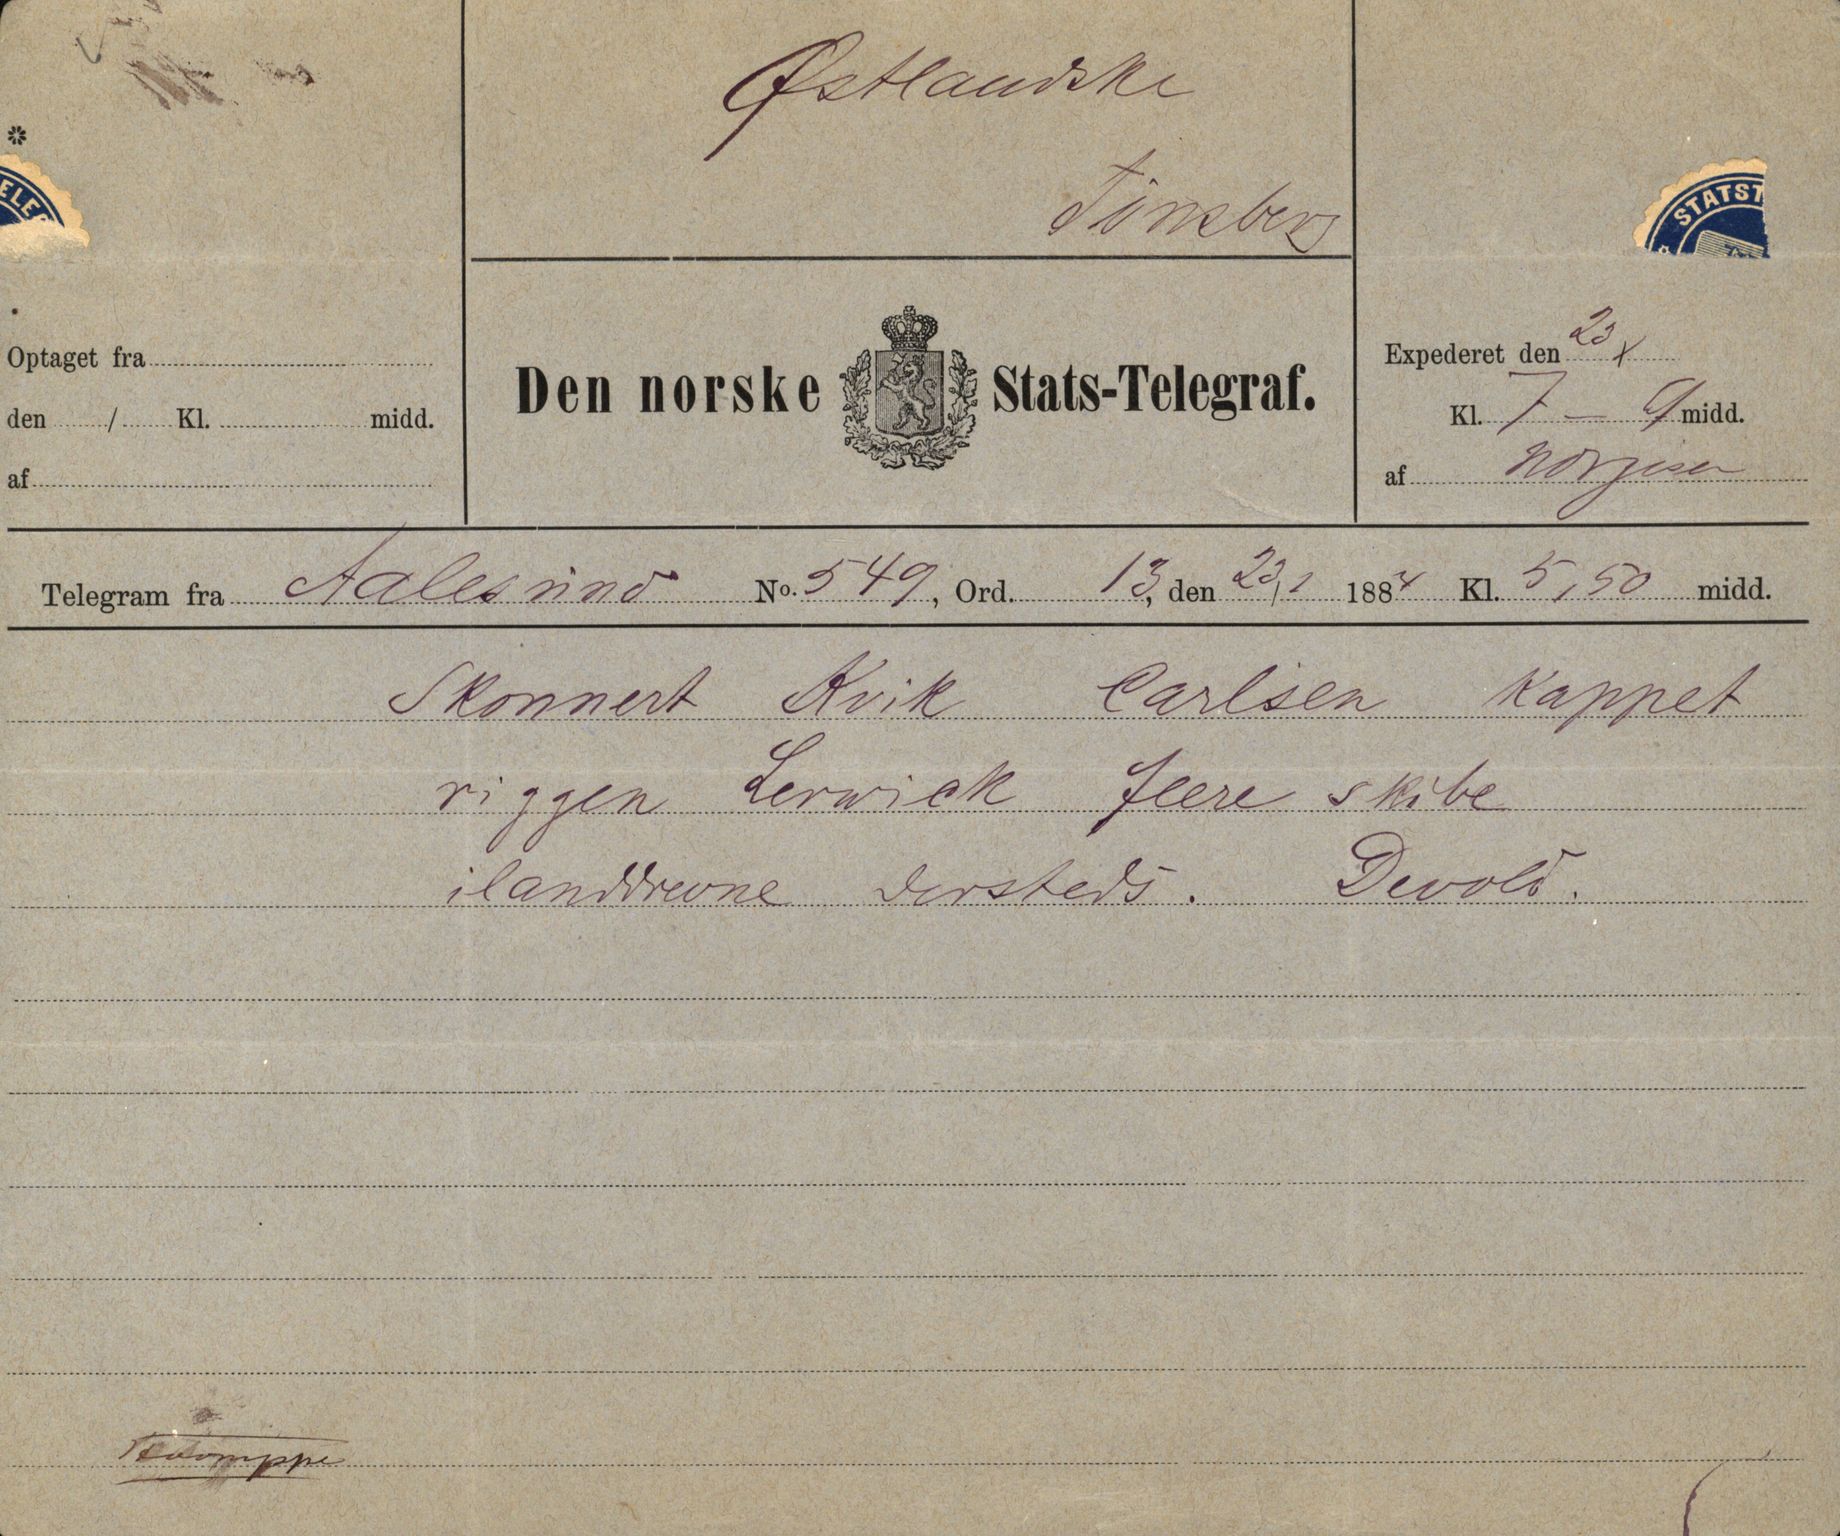 Østlandske
Tönsberg
ELEG
STATST
Optaget fra
den / Kl. midd.
af
Den norske Stats-Telegraf.
Expederet den 23/X
Kl. 7 – midd.
af
Telegram fra Aalesund No. 549, Ord. 13, den 23/1 1884 Kl. 5,50 midd.
Skonnert Kvik Carlsen kappet
riggen Lerwick fleere skibe
ilanddrevne dersteds. Devold.